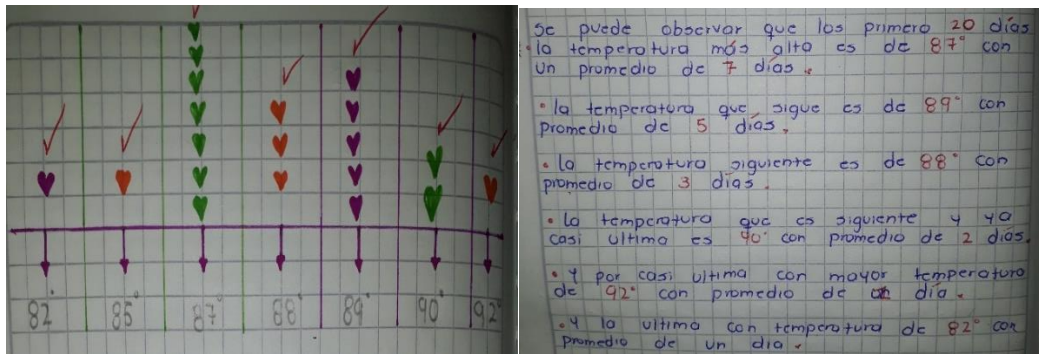 82°
85°
87°
88°
89°
90°
92°
se puede observar que los primero 20 días
la temperatura más alta es de 87° con
un promedio de 7 días.
• la temperatura que sigue es de 89° con
promedio de 5 días.
• la temperatura siguiente es de 88° con
promedio de 3 días.
• la temperatura que es siguiente y ya
casi ultima es 90° con promedio de 2 días.
• y por casi ultima con mayor temperatura
de 92° con promedio de día.
• y la ultima con temperatura de 82° con
promedio de un dia.